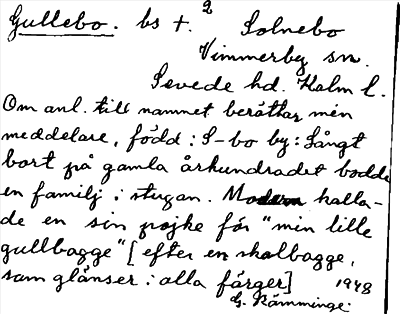 Gullebo. bs t.² Solnebo
Vimmerby sn.
Sevede hd. Kalm l.
Om anl. till namnet berättar min
meddelare, född i S-bo by: Långt
bort på gamla århundradet bodde
en familj i stugan. Modern kalla-
de en sin pojke för "min lille
gullbagge" [efter en skalbagge,
som glänser i alla färger]
1948
G. Rämminge